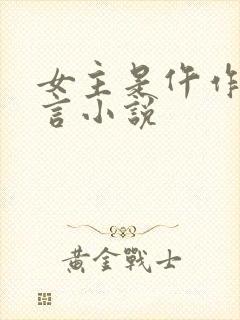 女主是仵作
言小說
黃金戰士